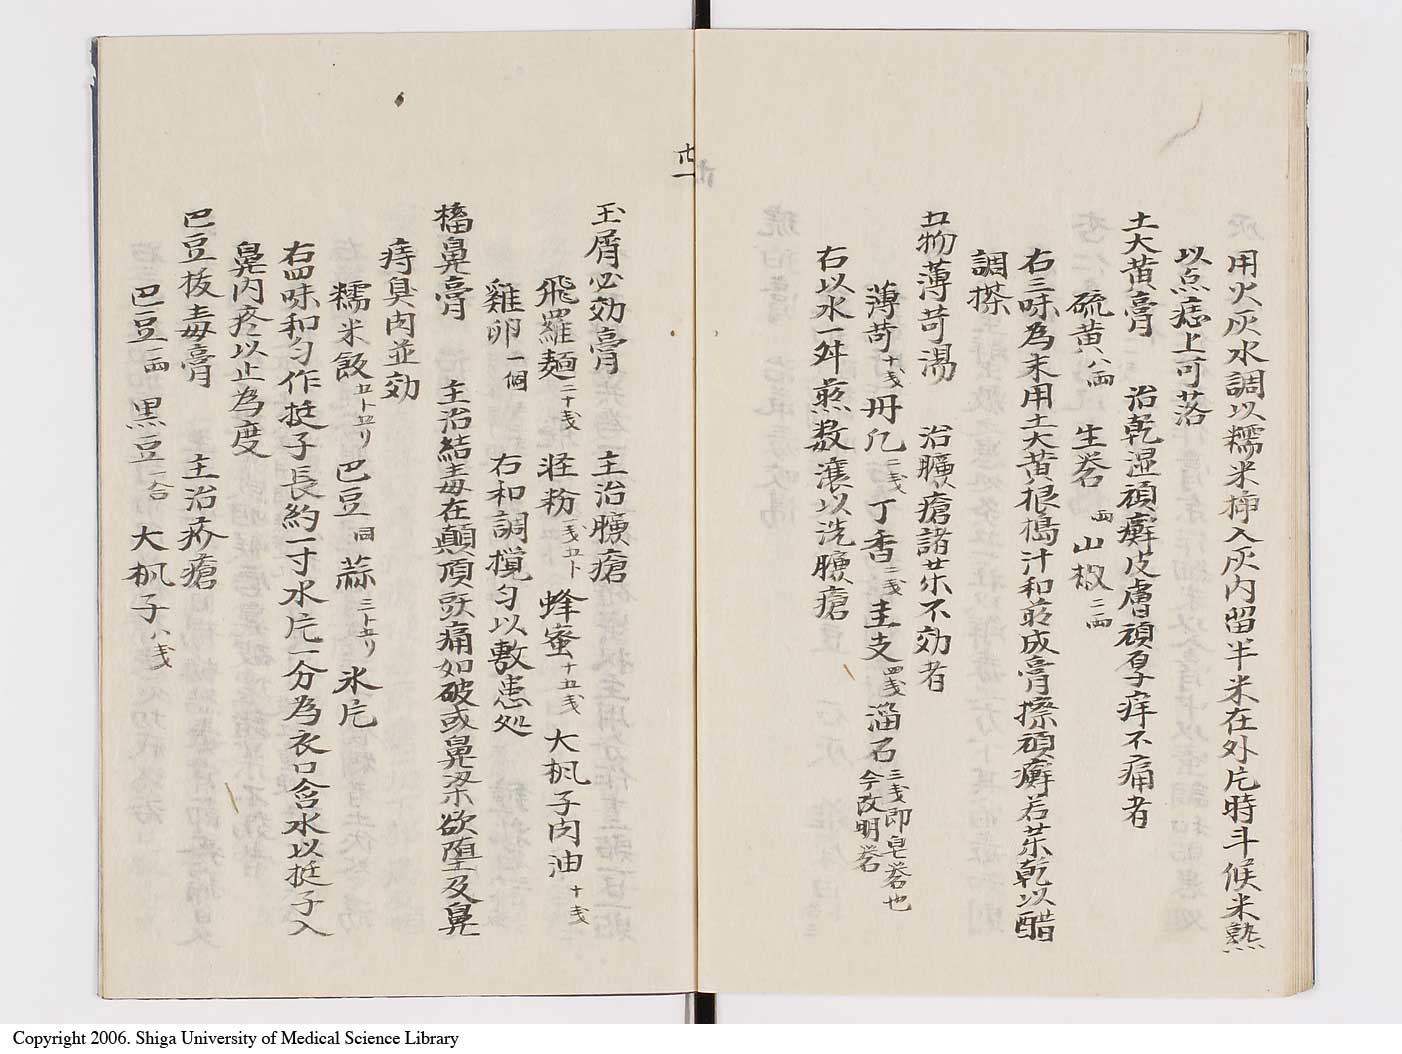 用火灰水調以糯米揷入灰内留半米在外片時斗候米熟
以点痣上可落
土大黄膏 治乾湿頑癬皮膚頑厚痒不痛者
硫黄八両 生礬両 山椒二両
右三味為末用土大黄根搗汁和前成膏擦頑癬若茱乾以醋
調搽
五物薄苛湯 治臁瘡諸茱不効者
薄苛十戔 丹几二戔 丁香二戔 圭支四戔 滑石三戔即皂礬也今改明礬
右以水一舛煎数滾以洗臁瘡
廿一
玉屑必効膏 主治臁瘡
飛羅麺二十戔 粧粉一戔五卜 蜂蜜十五戔 大枫子肉油十戔
雞卵一個 右和調攪匀以敷患処
𣛴鼻膏 主治結毒在顛頂頭痛如破或鼻梁欲堕及鼻
痔臭肉並効
糯米飯五卜五リ 巴豆同 蒜三卜五リ 氷片
右四味和匀作挺子長約一寸水片一分為衣口含水以挺子入
鼻内疼以止為度
巴豆抜毒膏 主治疥瘡
巴豆一両 黒豆一合 大枫子八戔
Copyright 2006. Shiga University of Medical Science Library